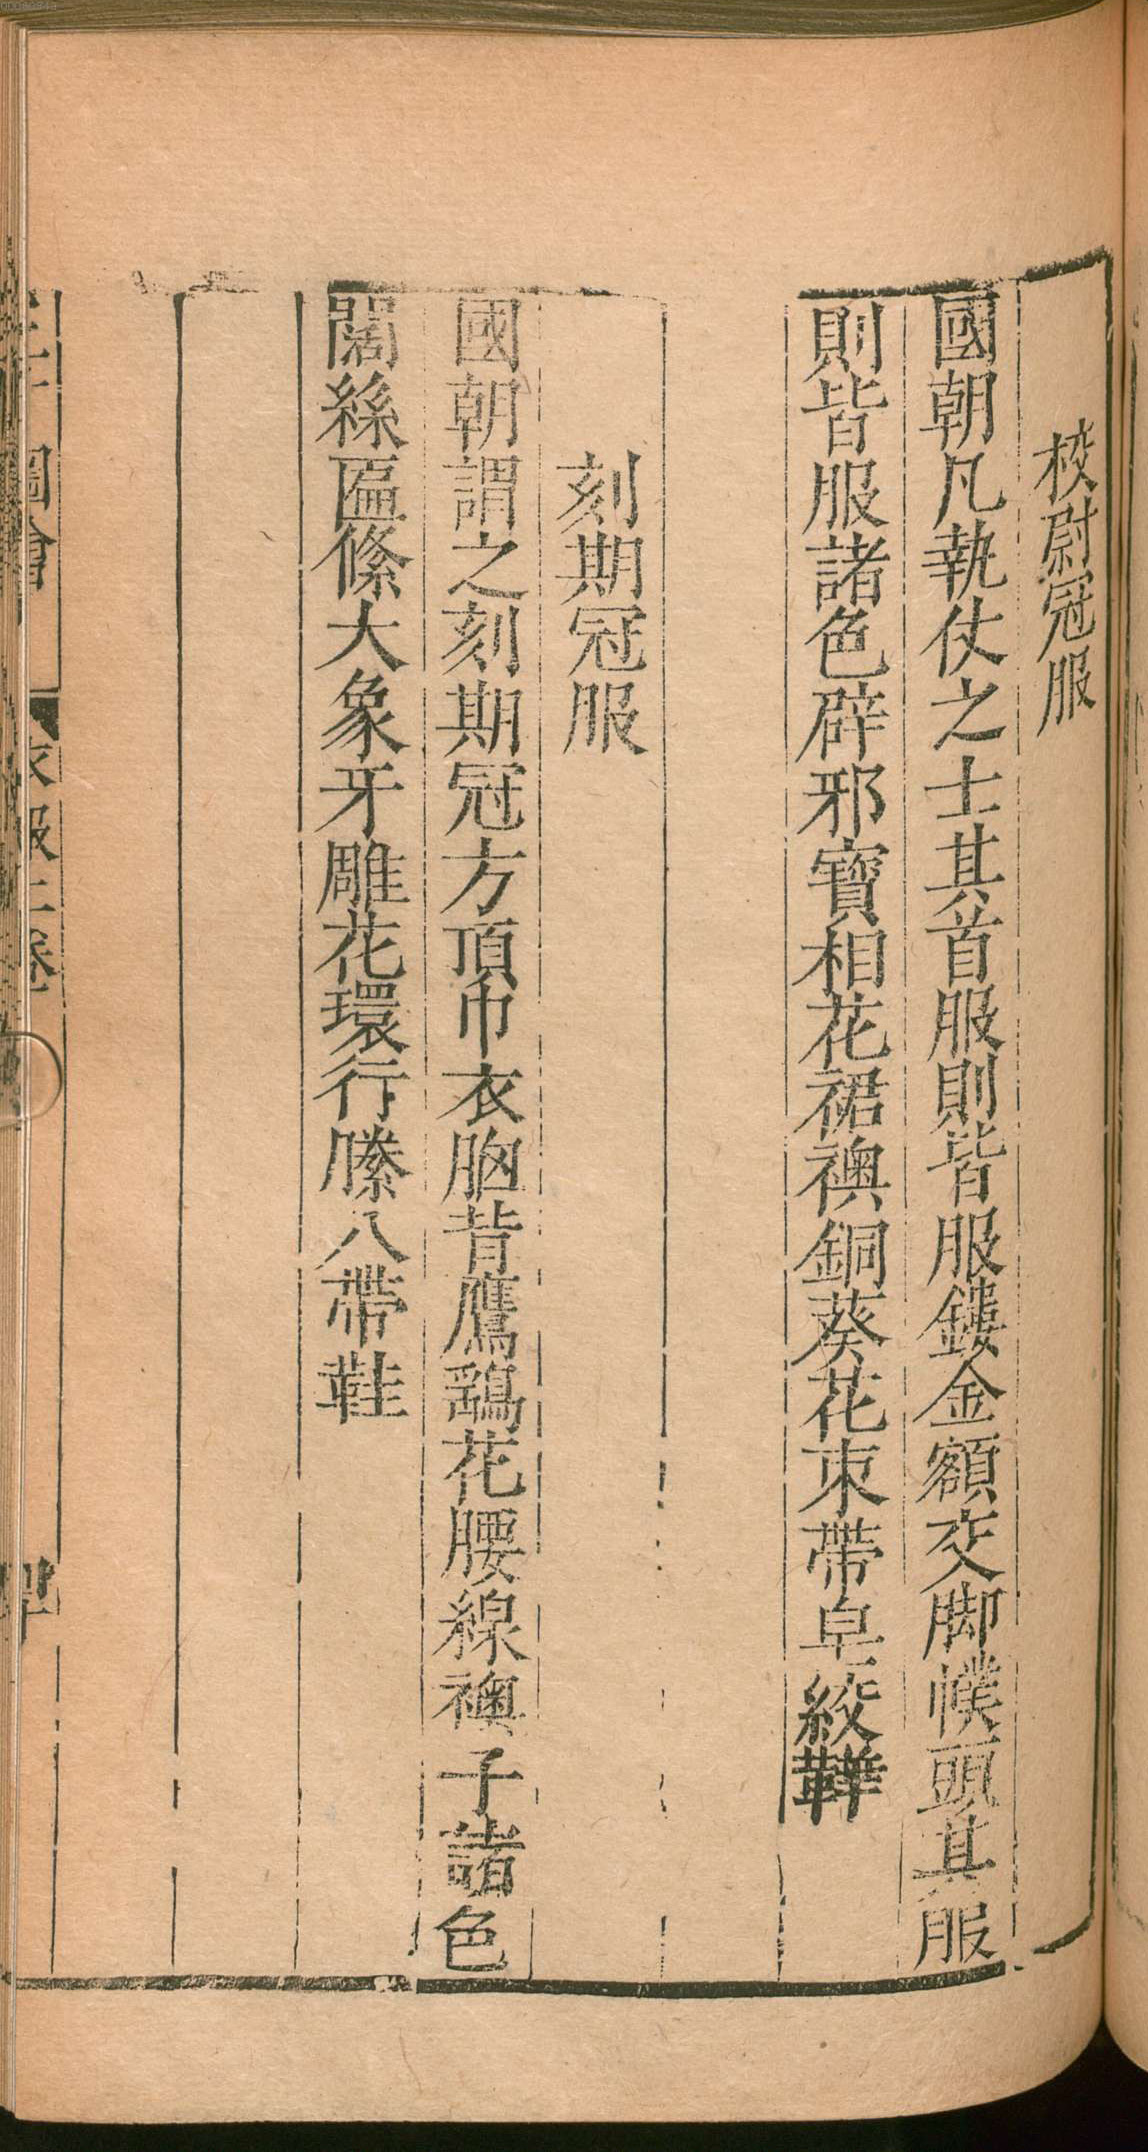 校尉冠服
國朝凡執仗之士其首服則皆服鏤金額交脚幞頭其服
則皆服諸色辟邪寶相花裙襖銅葵花束帶皁絞鞾
刻期冠服
國朝謂之刻期冠方頂巾衣胸背鷹鷂花腰線襖子諸色
闊絲匾絛大象牙雕花環行縢八帶鞋
圖會
衣服三卷